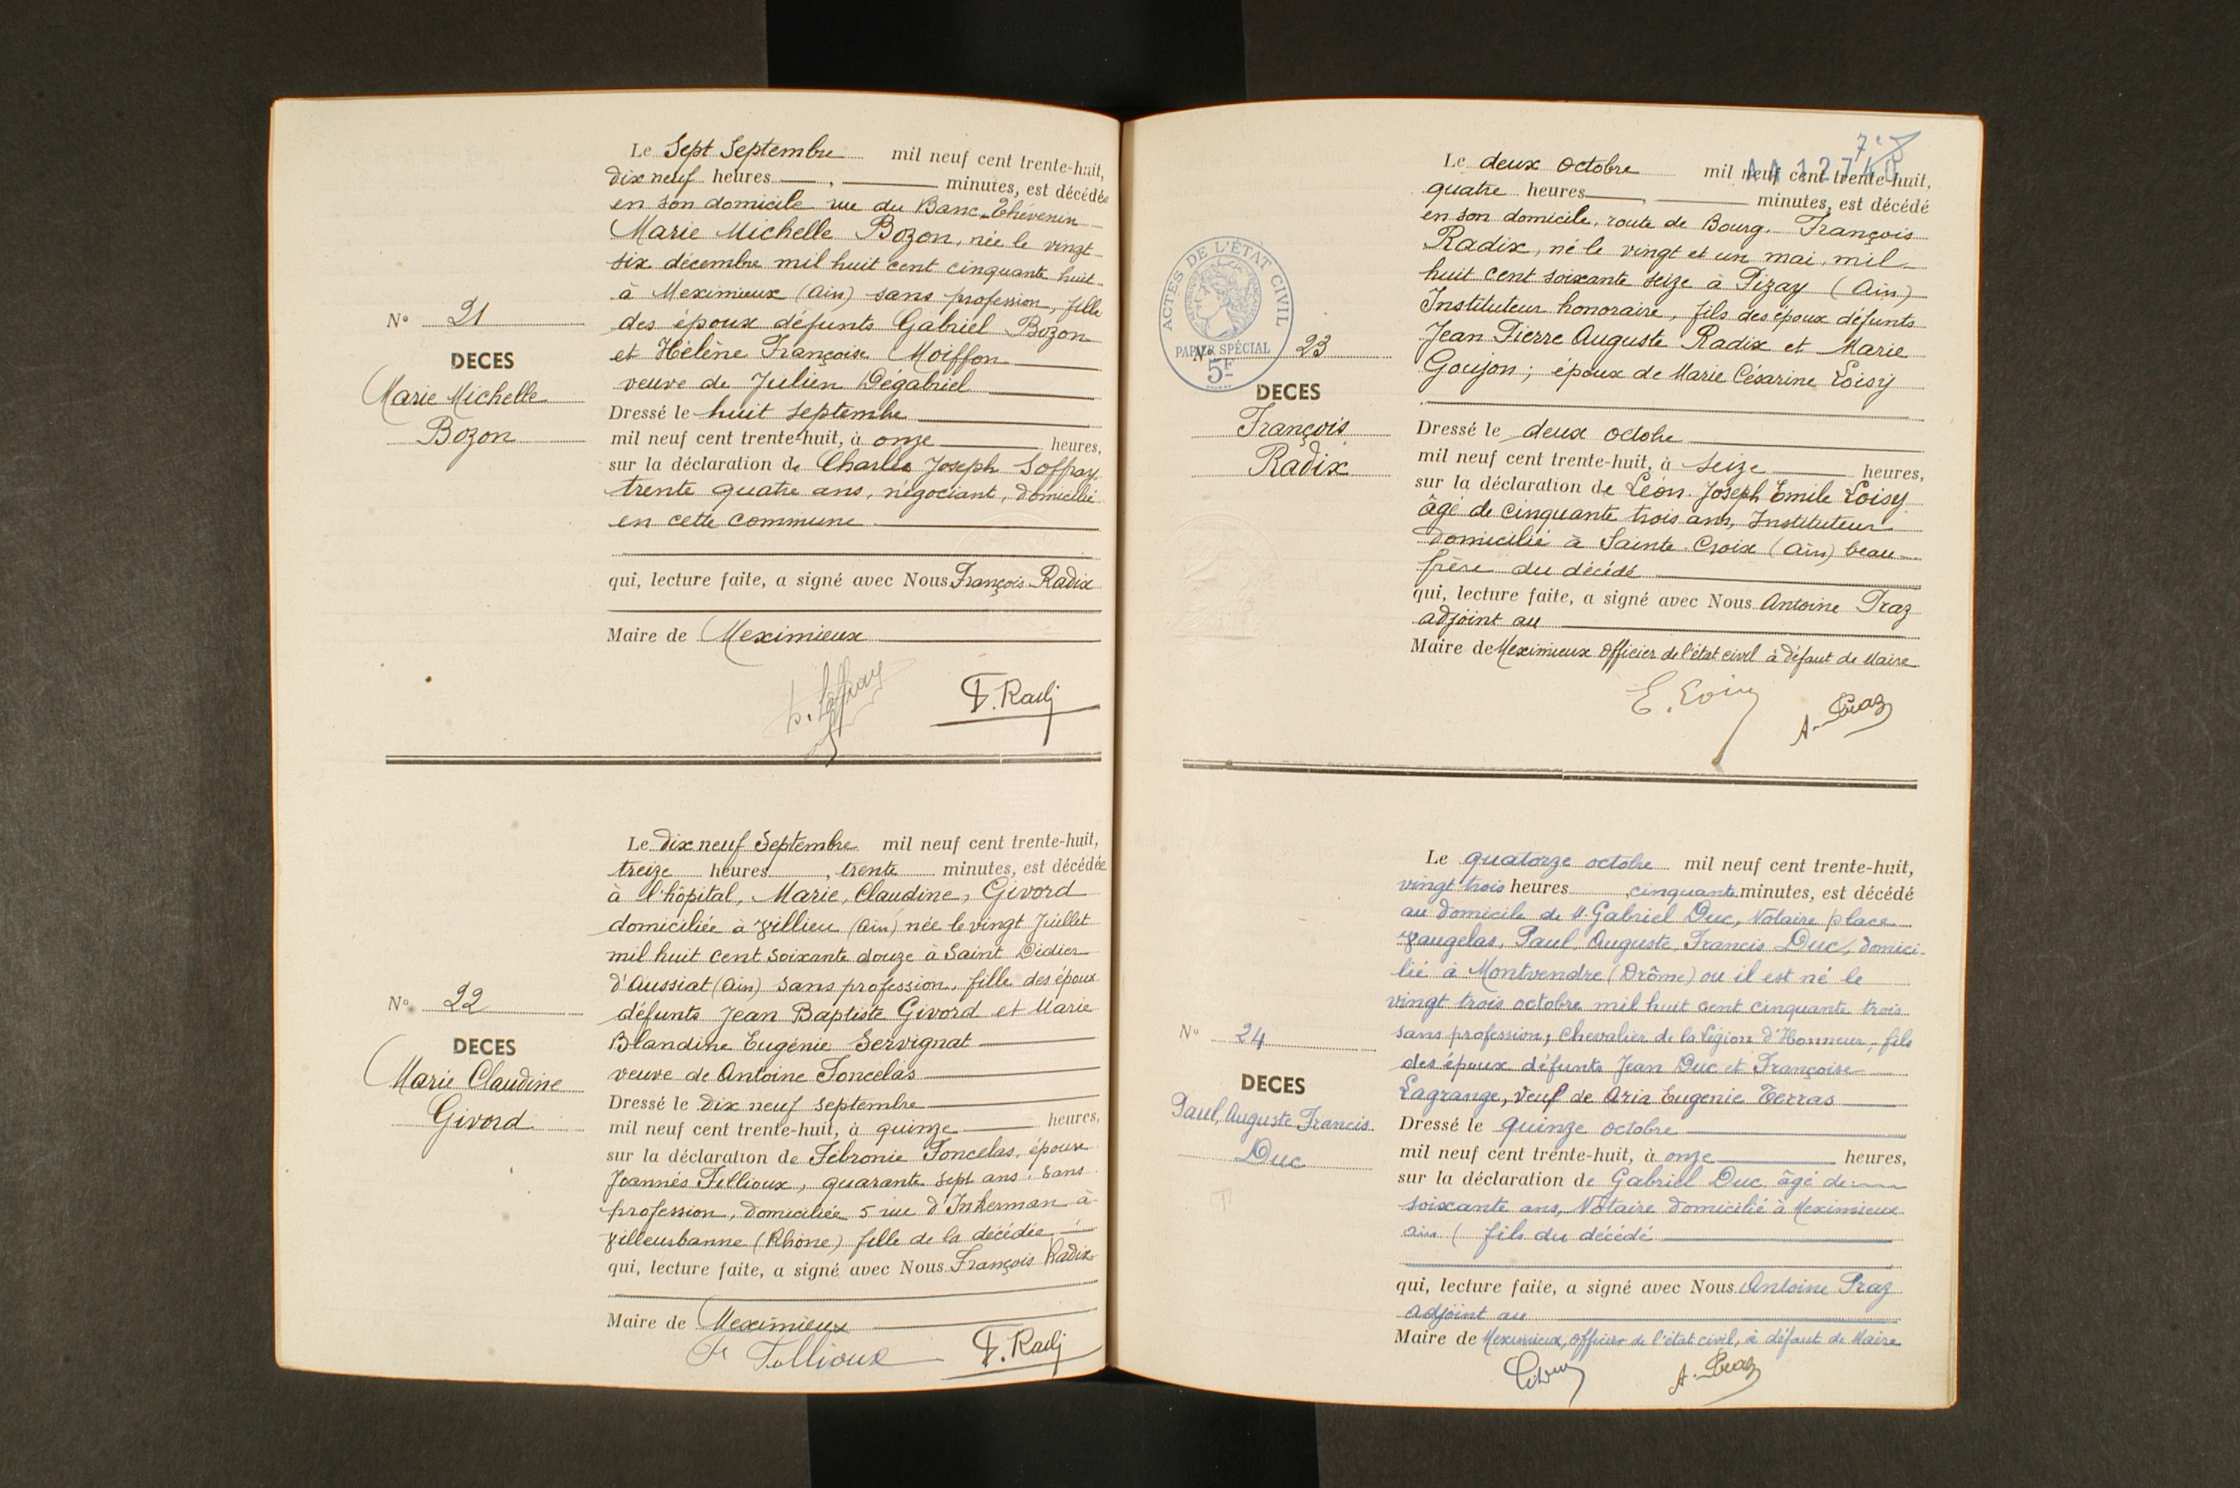 Le Sept Septembre mil neuf cent trente-huit,
dix neuf heures , minutes, est décédée
en son domicile rue du Banc-Thévenin
Marie Michelle Bozon, née le vingt
six décembre mil huit cent cinquante huit
à Meximieux (Ain) sans profession, fille
N° 21
des époux défunts Gabriel Bozon
et Hélène Françoise Moiffon
DECES
veuve de Julien Dégabriel
Marie Michelle
Bozon
Dressé le huit septembre
mil neuf cent trente-huit, à onze heures,
sur la déclaration de Charles Joseph Soffray,
trente quatre ans, négociant, domicilié
en cette commune
qui, lecture faite, a signé avec Nous François Radix
Maire de Meximieux
F. Radix
Le dix neuf Septembre mil neuf cent trente-huit,
treize heures , trente minutes, est décédée
à l'hôpital, Marie, Claudine, Givord
domiciliée à Villieu (Ain) née le vingt Juillet
mil huit cent soixante douze à Saint Didier
d'Aussiat (Ain) sans profession, fille des époux
N° 22
défunts Jean Baptiste Givord et Marie
Blandine Eugénie Servignat
DECES
veuve de Antoine Foncelas
Marie Claudine
Givord
Dressé le dix neuf septembre
mil neuf cent trente-huit, à quinze heures,
sur la déclaration de Fébronie Foncelas, épouse
Joannés Fellioux, quarante sept ans, sans
profession, domiciliée 5 rue d'Inkerman à
Villeurbanne (Rhône) fille de la décédée
qui, lecture faite, a signé avec Nous François Radix
Maire de Meximieux
Fe Fellioux F. Radix
Le deux octobre mil neuf cent trente-huit,
quatre heures , minutes, est décédé
en son domicile, route de Bourg. François
Radix, né le vingt et un mai mil
huit cent soixante seize à Pizay (Ain)
Instituteur honoraire, fils des époux défunts
ACTES DE L'ÉTAT CIVIL
PAPIER SPÉCIAL
5F
N° 23
Jean Pierre Auguste Radix et Marie
Goujon; époux de Marie Césarine Loisy
DECES
François
Radix
Dressé le deux octobre
mil neuf cent trente-huit, à seize heures,
sur la déclaration de Léon Joseph Emile Loisy
âgé de cinquante trois ans, Instituteur
domicilié à Sainte Croix (Ain) beau
frère du décédé
qui, lecture faite, a signé avec Nous Antoine Praz
adjoint au
Maire de Meximieux officier de l'état civil à défaut de Maire
E. Loisy A. Praz
Le quatorze octobre mil neuf cent trente-huit,
vingt trois heures , cinquante minutes, est décédé
au domicile de M. Gabriel Duc, Notaire place
Vaugelas, Paul, Auguste, Francis Duc, domici-
lié à Montvendre (Drôme) ou il est né le
vingt trois octobre mil huit cent cinquante trois
N° 24
sans profession, Chevalier de la Légion d'Honneur, fils
des époux défunts Jean Duc et Françoise
DECES
Lagrange, Veuf de Aria Eugenie Terras
Paul, Auguste Francis
Duc
Dressé le quinze octobre
mil neuf cent trente-huit, à onze heures,
sur la déclaration de Gabriel Duc âgé de
soixante ans, Notaire domicilié à Meximieux
Ain ( fils du décédé
qui, lecture faite, a signé avec Nous Antoine Praz
adjoint au
Maire de Meximieux, officier de l'état civil, à défaut de Maire
A. Praz